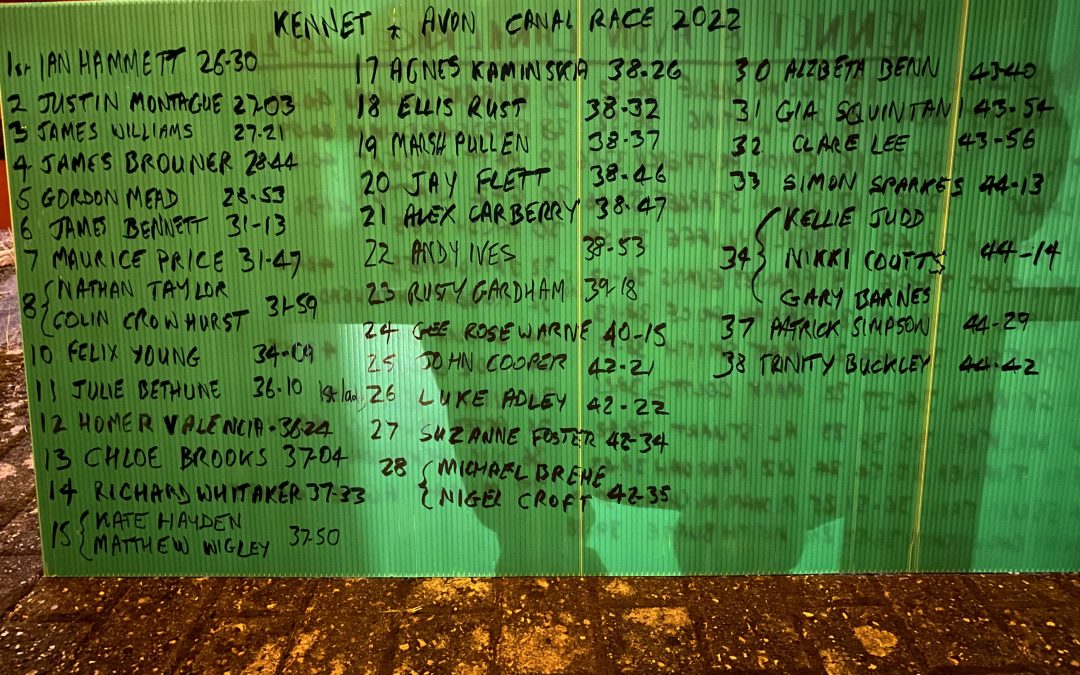 KENNET & AVON CANAL RACE 2022
1st IAN HAMMETT 26-30
2 JUSTIN MONTAGUE 27-03
3 JAMES WILLIAMS 27-21
4 JAMES BROUNER 28-44
5 GORDON MEAD 28-53
6 JAMES BENNETT 31-13
7 MAURICE PRICE 31-47
8 { NATHAN TAYLOR
COLIN CROWHURST 31-59
10 FELIX YOUNG 34-09
11 JULIE BETHUNE 36-10 1st lady
12 HOMER VALENCIA - 36-24
13 CHLOE BROOKS 37-04
14 RICHARD WHITAKER 37-33
15 { KATE HAYDEN
MATTHEW WIGLEY 37-50
17 AGNES KAMINSKIA 38-26
18 ELLIS RUST 38-32
19 MARSH PULLEN 38-37
20 JAY FLETT 38-46
21 ALEX CARBERRY 38-47
22 ANDY IVES 38-53
23 RUSTY GARDHAM 39-18
24 GEE ROSEWARNE 40-15
25 JOHN COOPER 42-21
26 LUKE ADLEY 42-22
27 SUZANNE FOSTER 42-34
28 { MICHAEL BREHE
NIGEL CROFT 42-35
30 ALZBETA BENN 43-40
31 GIA SQUINTANI 43-54
32 CLARE LEE 43-56
33 SIMON SPARKES 44-13
{ KELLIE JUDD
34 NIKKI COUTTS 44-14
GARY BARNES
37 PATRICK SIMPSON 44-29
38 TRINITY BUCKLEY 44-42